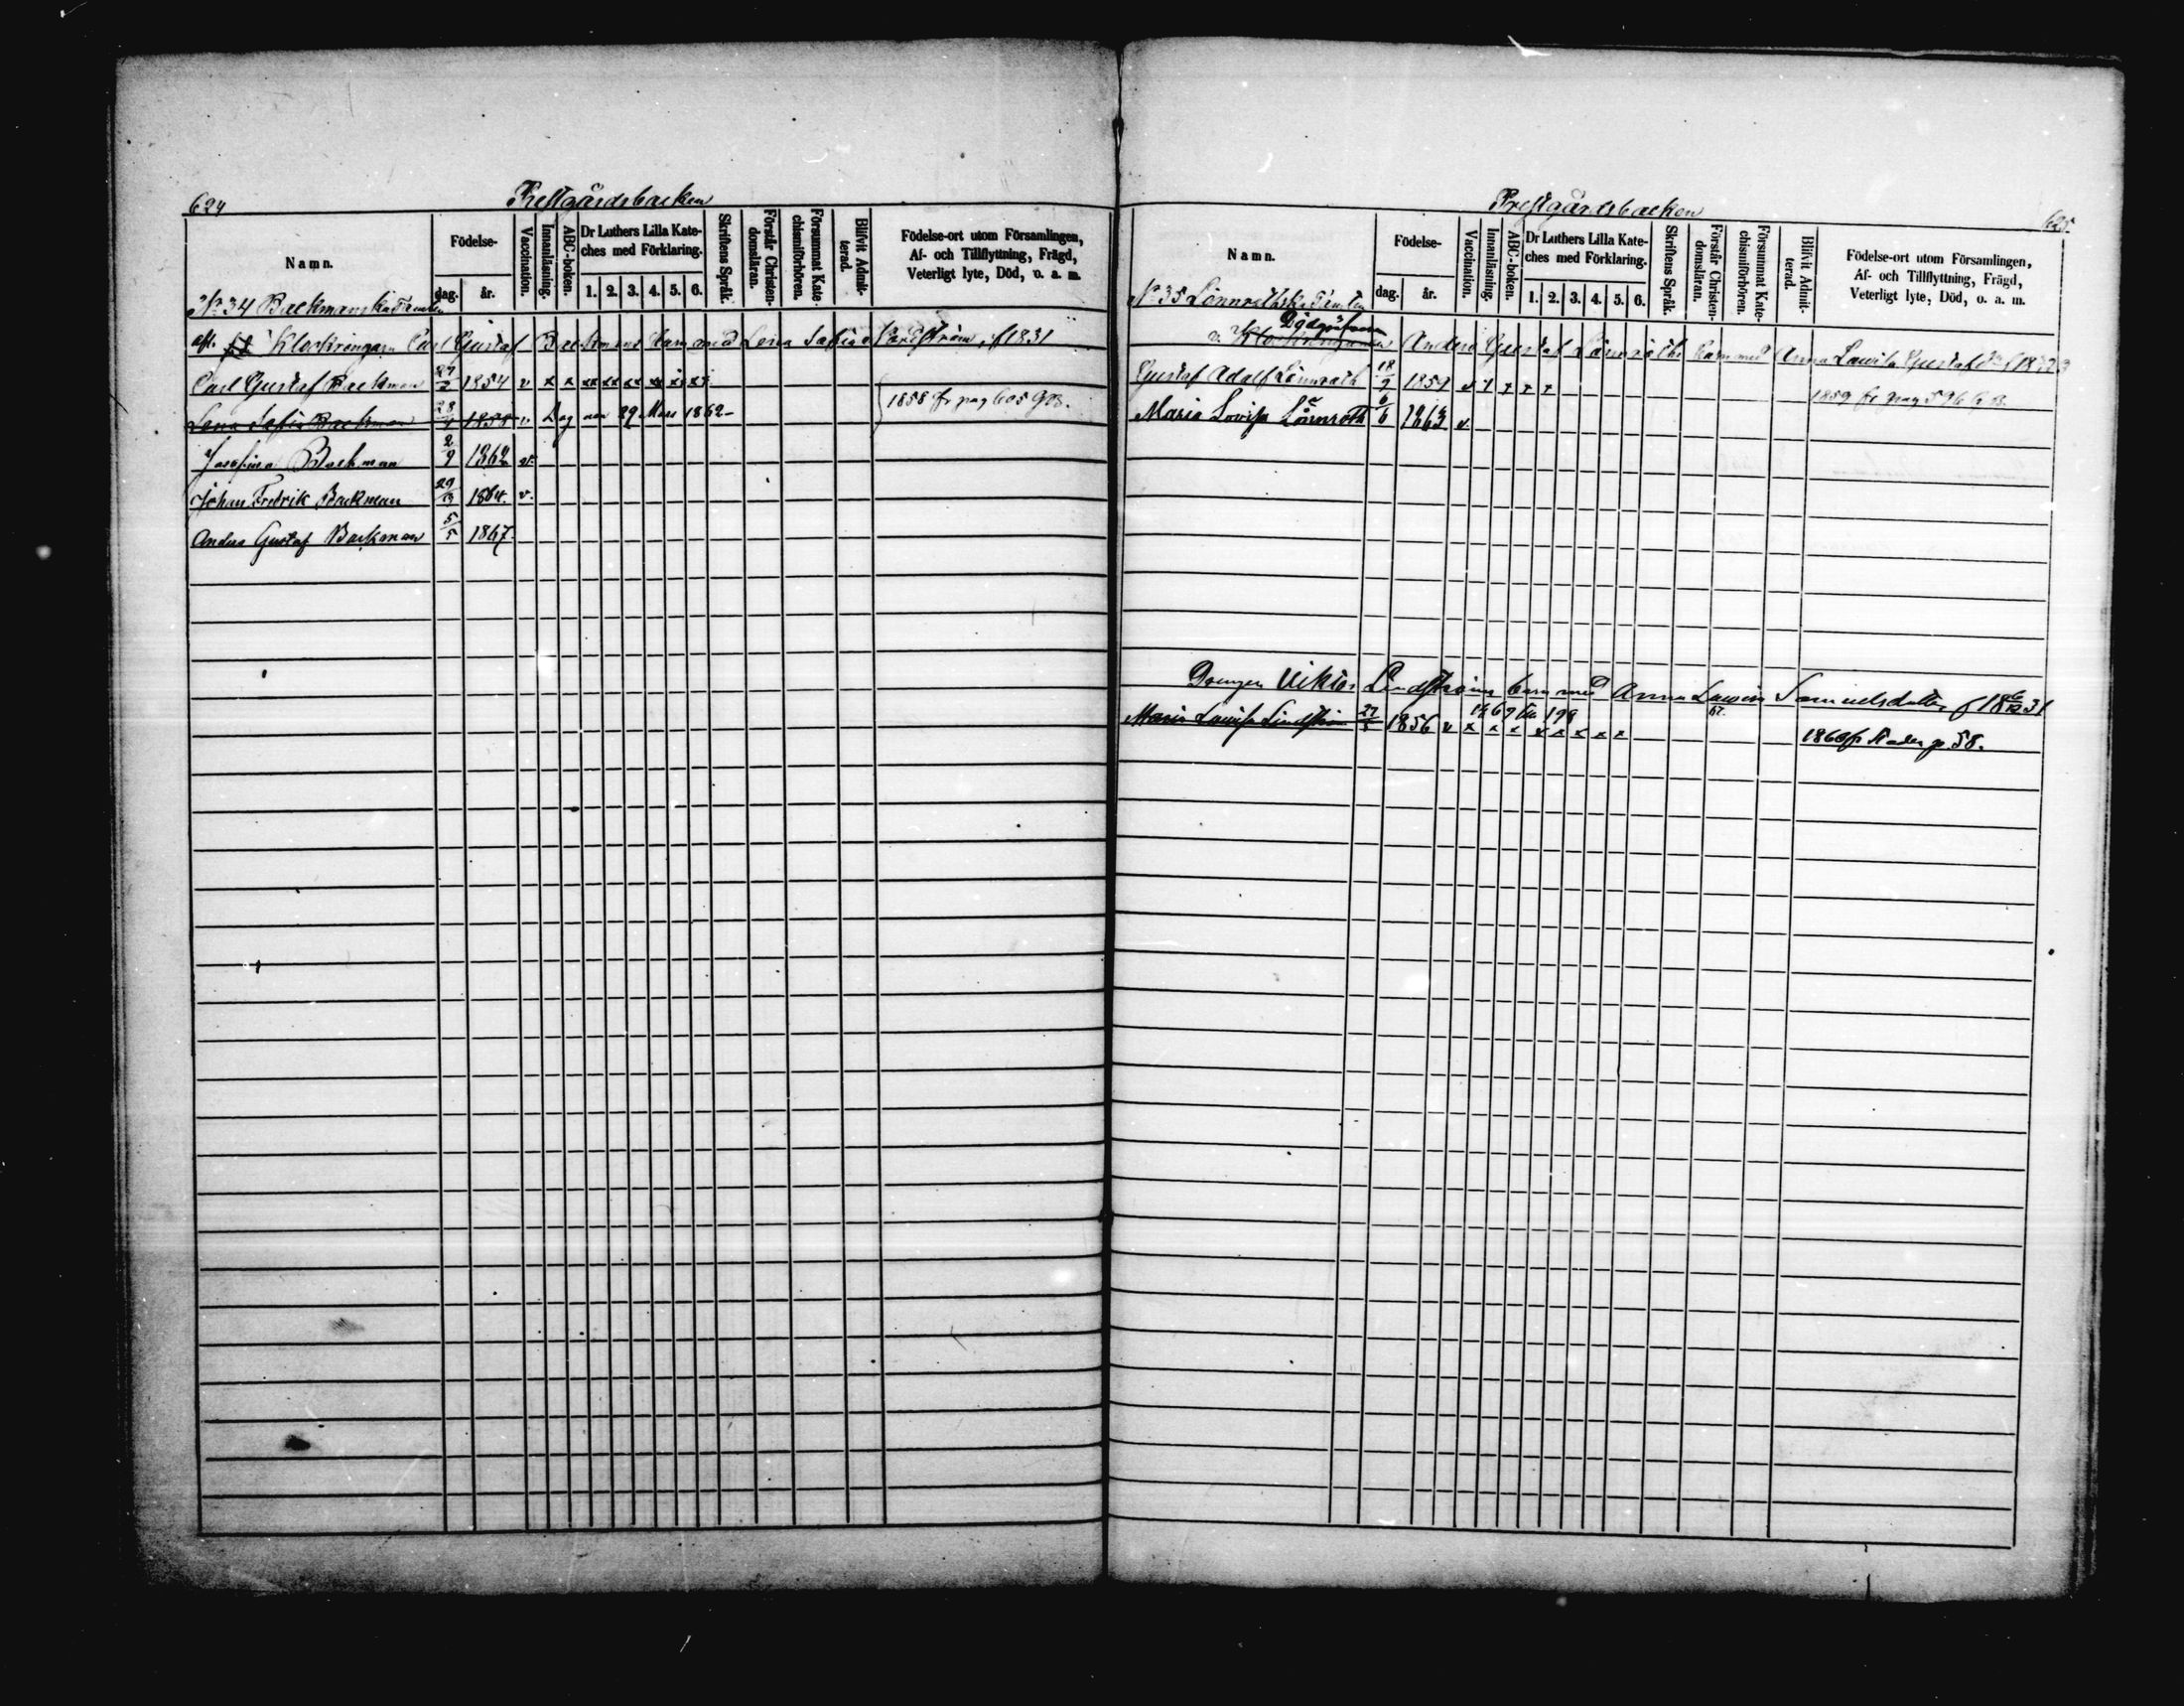 624
Prestgårdsbacken
Namn.
Födelse-
dag.
år.
Vaccination.
Innanläsning.
ABC-boken.
Dr Luthers Lilla Kate-
ches med Förklaring.
1. 2. 3. 4. 5. 6.
Skriftens Språk.
Förstår Christen-
domsläran.
Försummat Kate-
chismiförhören.
Blifvit Admit-
terad.
Födelse-ort utom Församlingen,
Af- och Tillflyttning, Frägd,
Veterligt lyte, Död, o. a. m.
No 34 Backmanska
Klockringaren Carl Gustaf Backmans barn med Lena Sofia f 1831
Carl Gustaf Backman 1854 v x x xx xx xx xx x x
1858 fr pag 605 GB.
Lena Sofia Backman 28/4 1858 v Dog den 29 Mars 1862
Josefina Backman 2/9 1862 v.
Johan Fredrik Backman 1864. v.
Anders Gustaf Backman 5/5 1867
625.
Prestgårdsbacken
Namn.
Födelse-
dag.
år.
Vaccination.
Innanläsning.
ABC-boken.
Dr Luthers Lilla Kate-
ches med Förklaring.
1. 2. 3. 4. 5. 6.
Skriftens Språk.
Förstår Christen-
domsläran.
Försummat Kate-
chismiförhören.
Blifvit Admit-
terad.
Födelse-ort utom Församlingen,
Af- och Tillflyttning, Frägd,
Veterligt lyte, Död, o. a. m.
No 35 Lönnrothska
Dödgräfvaren
Klockringaren Anders Gustaf Lönnroths barn med Anna Lovisa
Gustaf Adolf Lönnroth 18/9 1859 v x x x x
1859 fr pag 596 G B.
Maria Lovisa Lönnroth 6/6 1863 v.
Drengen Viktor Lindströms barn med Anna Lovisa Samuelsdotter f 18 6/12 31
Maria Lovisa Lindström 27/5 1856 v x x x x x x x x
1860 fr Nader p. 58.